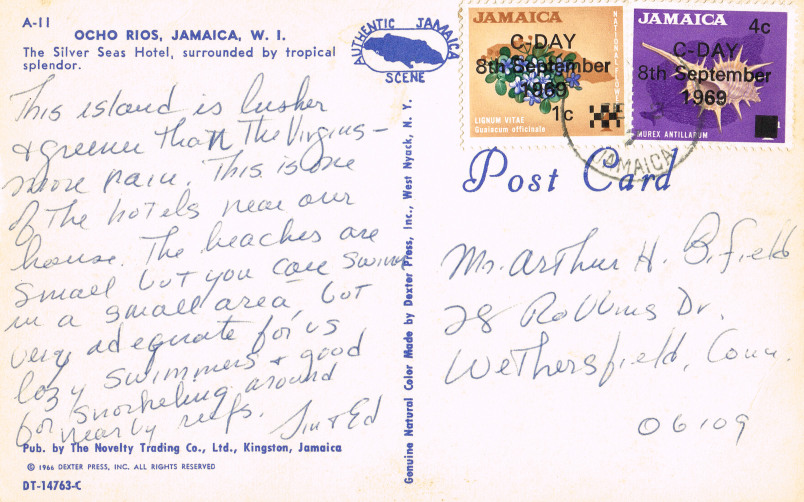 A-11
OCHO RIOS, JAMAICA, W. I.
The Silver Seas Hotel, surrounded by tropical
splendor.
AUTHENTIC JAMAICA
SCENE
This island is lusher
& greener than the Virgins –
more rain. This is one
of the hotels near our
house. The beaches are
small but you can swim
in a small area, but
very adequate for us
lazy swimmers & good
for snorkeling around
nearby reefs.
Pub. by The Novelty Trading Co., Ltd., Kingston, Jamaica
© 1966 DEXTER PRESS, INC. ALL RIGHTS RESERVED
DT-14763-C
Genuine Natural Color Made by Dexter Press, Inc., West Nyack, N. Y.
JAMAICA
NATIONAL FLOWER
C-DAY
8th September
1969
1c
LIGNUM VITAE
Guaiacum officinale
JAMAICA
4c
C-DAY
8th September
1969
MUREX ANTILLARUM
JAMAICA
Post Card
Mr. Arthur H. Bifield
28 Robbins Dr.
Wethersfield, Conn.
06109